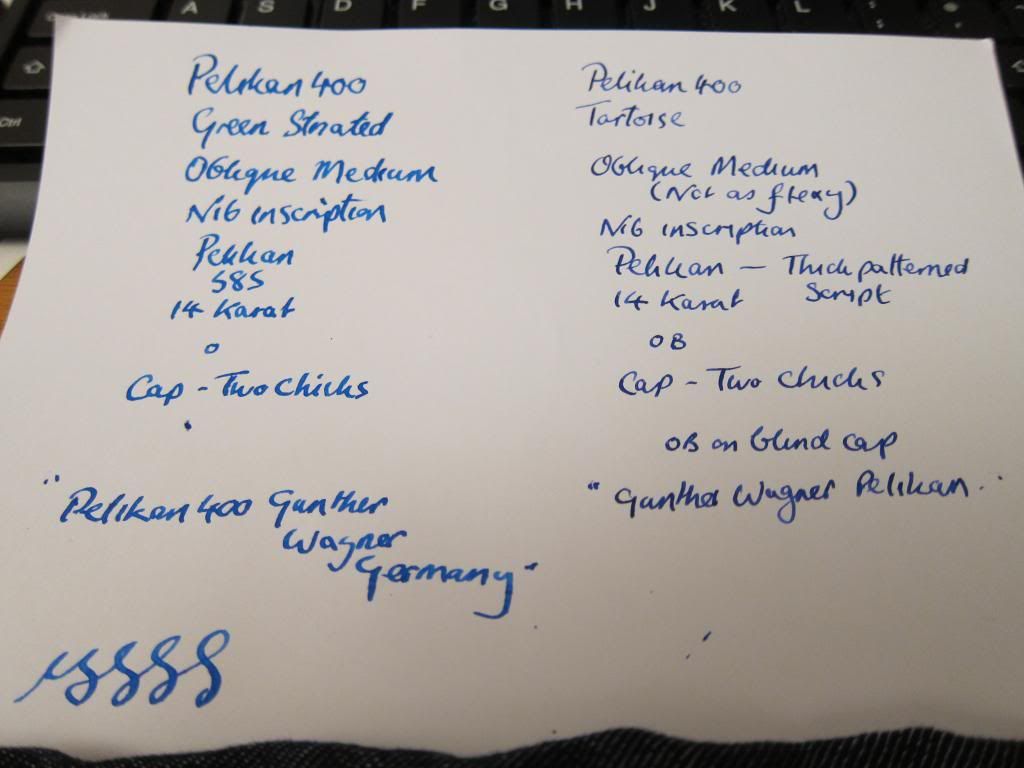 A S D F G H J K L
Ctrl
Pelikan 400
Green Striated
Oblique Medium
Nib inscription
Pelikan
585
14 Karat
O
Cap - Two Chicks
"Pelikan 400 Gunther
Wagner
Germany"
Pelikan 400
Tortoise
Oblique Medium
(Not as flexy)
Nib inscription
Pelikan — Thick patterned
Script
14 Karat
OB
Cap - Two Chicks
OB on blind cap
"Gunther Wagner Pelikan"